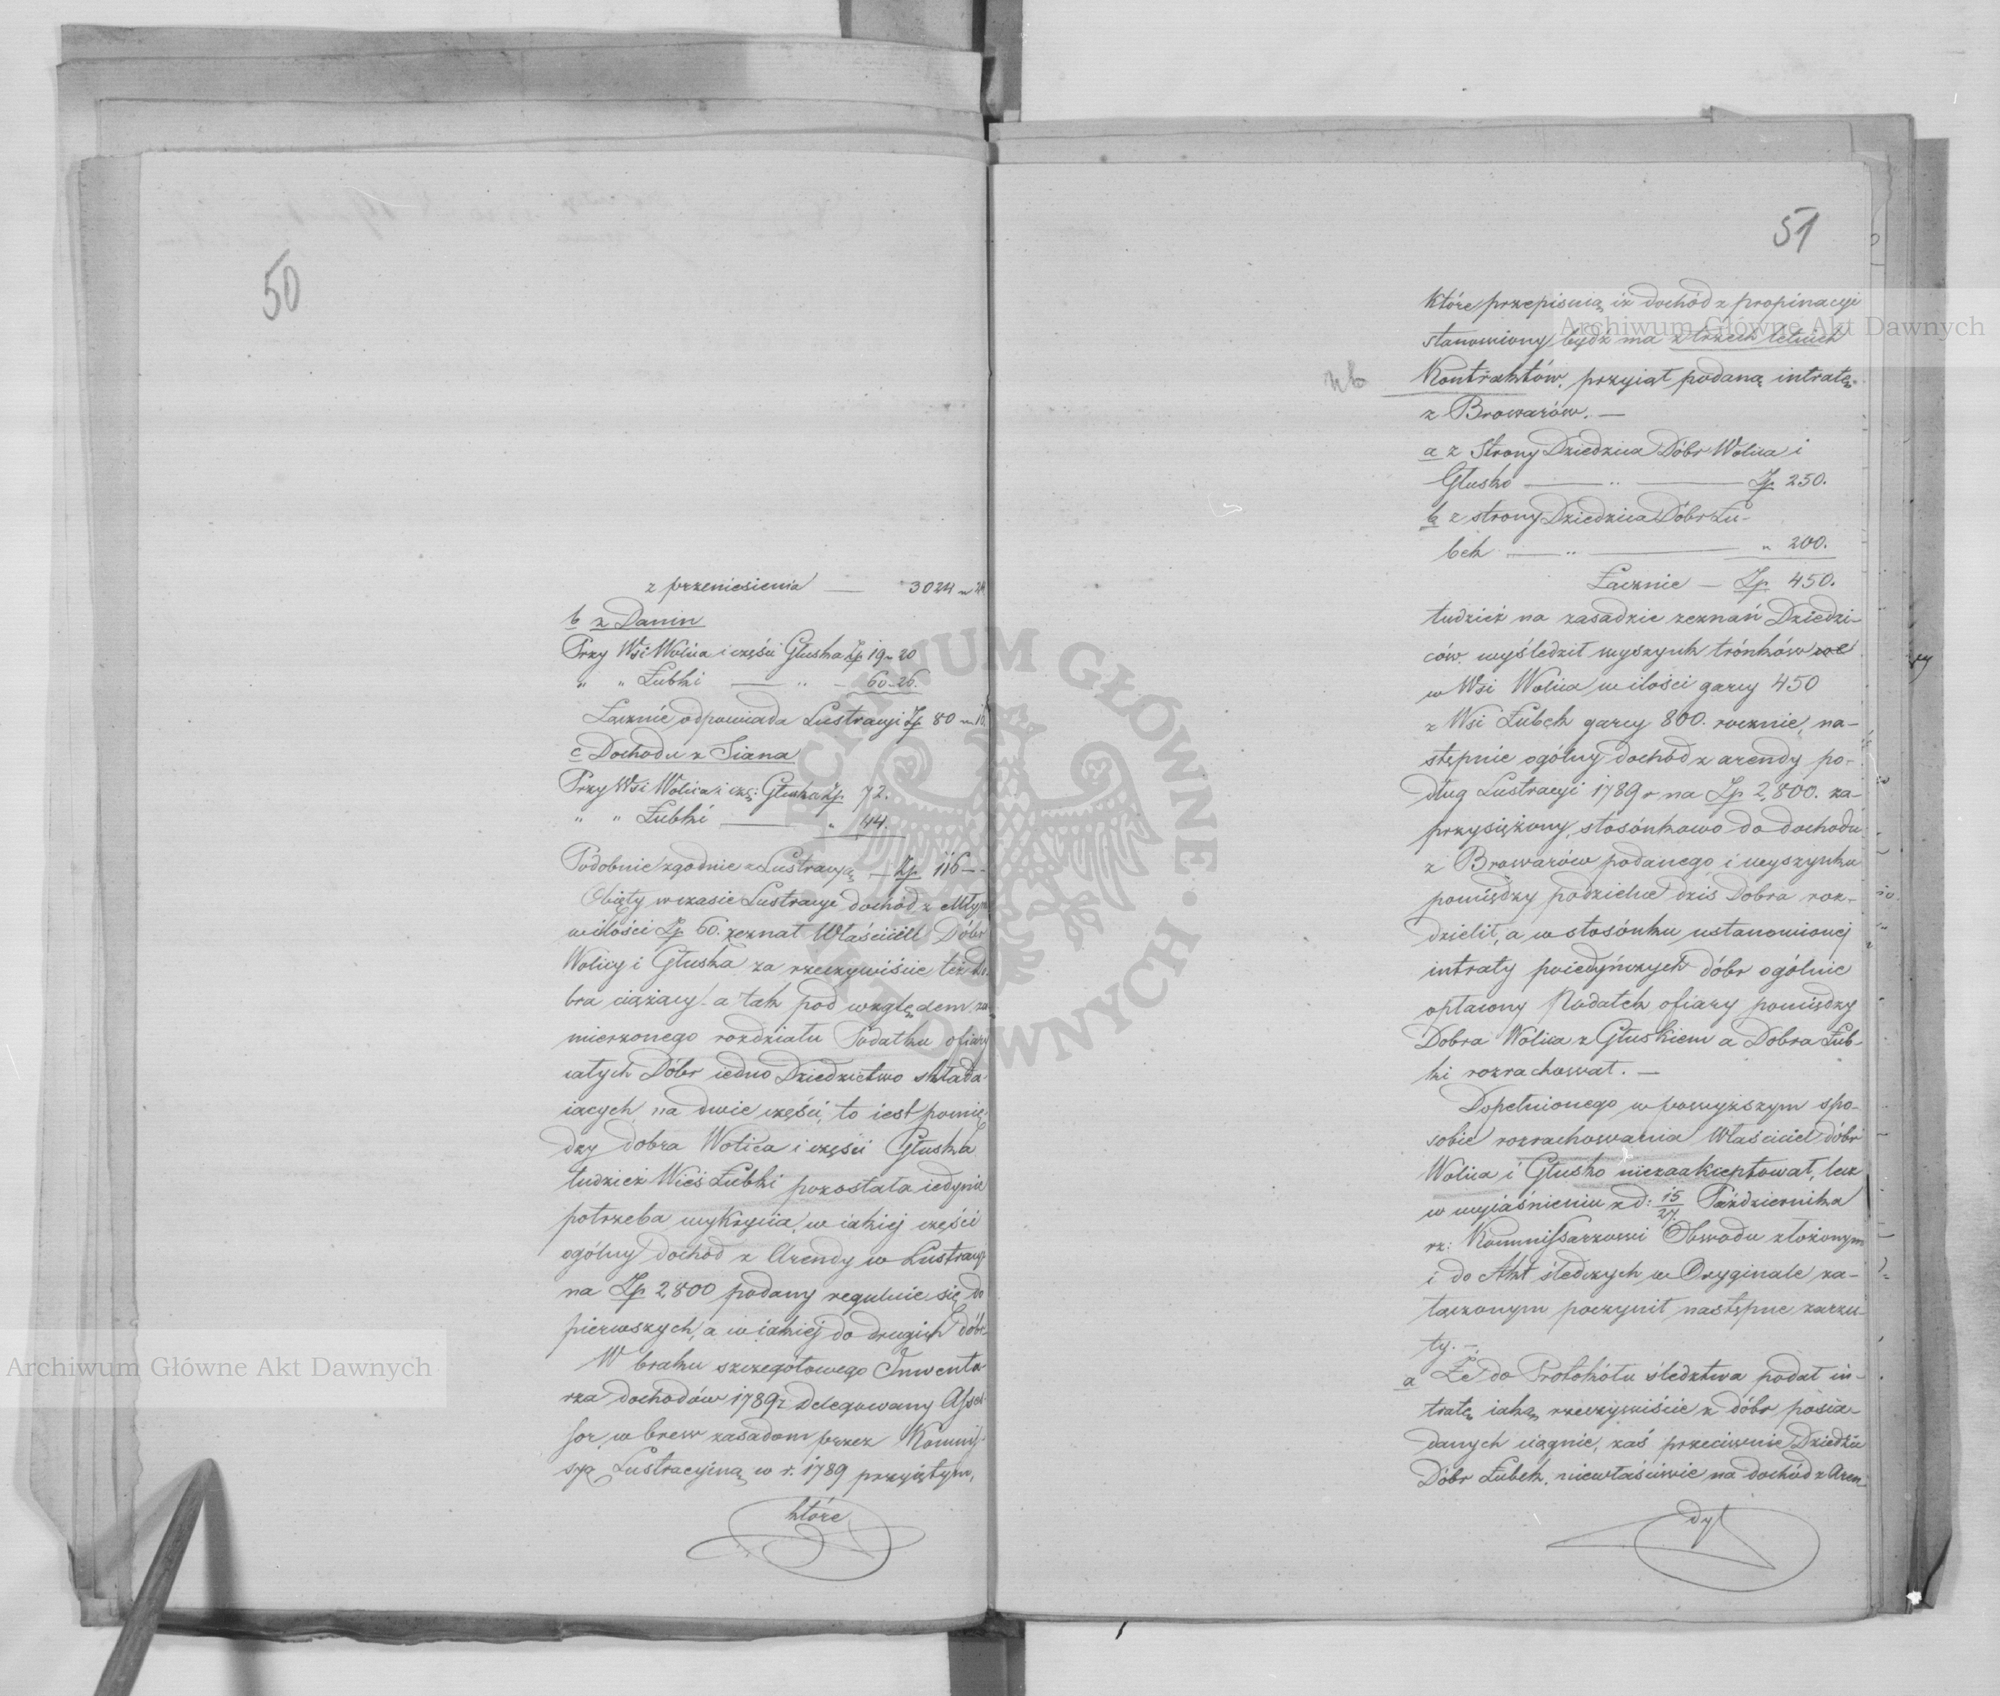 50
z przeniesienia — 3024 „ 24
b z Danin
Przy Wsi Wolica i części Głuska Zp 19 „ 20
„ „ Łubki — „ — 60 „ 26.
Łącznie odpowiada Lustracyi Zp 80 „ 16
c Dochodu z Siana
Przy Wsi Wolica i częś: Głuska Zp. 72.
„ „ Łubki — „ 44.
Podobnie zgodnie z Lustracyą — Zp. 116 —
Objęty w czasie Lustracyi dochód z Młyn
w ilości Zp 60. zeznał Właściciel Dóbr
Wolicy i Głuska za rzeczywiście też do
bra ciążący. a tak pod względem za
mierzonego rozdziału Podatku ofiary
całych Dóbr iedno Dziedzictwo składa
iacych na dwie części, to iest pomię
dzy dobra Wolica i części Głuska
tudzież Wieś Łubki pozostała iedynie
potrzeba wykrycia, w iakiej części
ogólny dochód z Arendy w Lustracyi
na Zp 2,800 podany reguluie się do
pierwszych, a w iakiej do drugich dóbr
W braku szczegółowego Inwenta
rza dochodów 1789 r Delegowany Asses
sor, w brew zasadom przez Kommis
syą Lustracyiną w r. 1789 przyiętym,
które
51
które przepisuią iż dochód z propinacyi
stanowiony bydź ma z trzech letnich
nb Kontraktów, przyiął podaną intratę
z Browarów. —
a z Strony Dziedzica Dóbr Wolica i
Głusko — „ — Zp 250.
b z strony Dziedzica Dóbr Łu-
bek — „ — „ 200.
Łącznie — Zp 450.
tudzież na zasadzie zeznań Dziedzi-
ców. wyśledził wyszynk trónków
w Wsi Wolica w ilości garcy 450
z Wsi Łubek garcy 800. rocznie, na-
stępnie ogólny dochód z arendy po-
dług Lustracyi 1789 r na Zp 2,800. za-
przysiężony, stosónkowo do dochodu
z Browarów podanego i wyszynku
pomiędzy podzielne dziś Dobra roz-
dzielił, a w stosónku ustanowionej
intraty poiedyńczych dóbr ogólnie
opłacony Podatek ofiary pomiędzy
Dobra Wolica z Głuskiem a Dobra Łub-
ki rozrachował. —
Dopełnionego w powyższym spo-
sobie rozrachowania Właściciel dóbr
Wolica i Głusko niezaakceptował, lecz
w wyiaśnieniu z d: 15/27. Października
rz: Kommissarzowi Obwodu złożonym
i do Akt śledczych w Oryginale za-
łączonym poczynił następne zarzu-
ty. —
a Że do Protokółu śledztwa podał in-
tratę iaką rzeczywiście z dóbr posia-
danych ciągnie, zaś przeciwnie Dziedzic
Dóbr Łubek. niewłaściwie na dochód z Aren-
dy
Archiwum Główne Akt Dawnych
Archiwum Główne Akt Dawnych
ARCHIWUM GŁÓWNE · AKT DAWNYCH ·